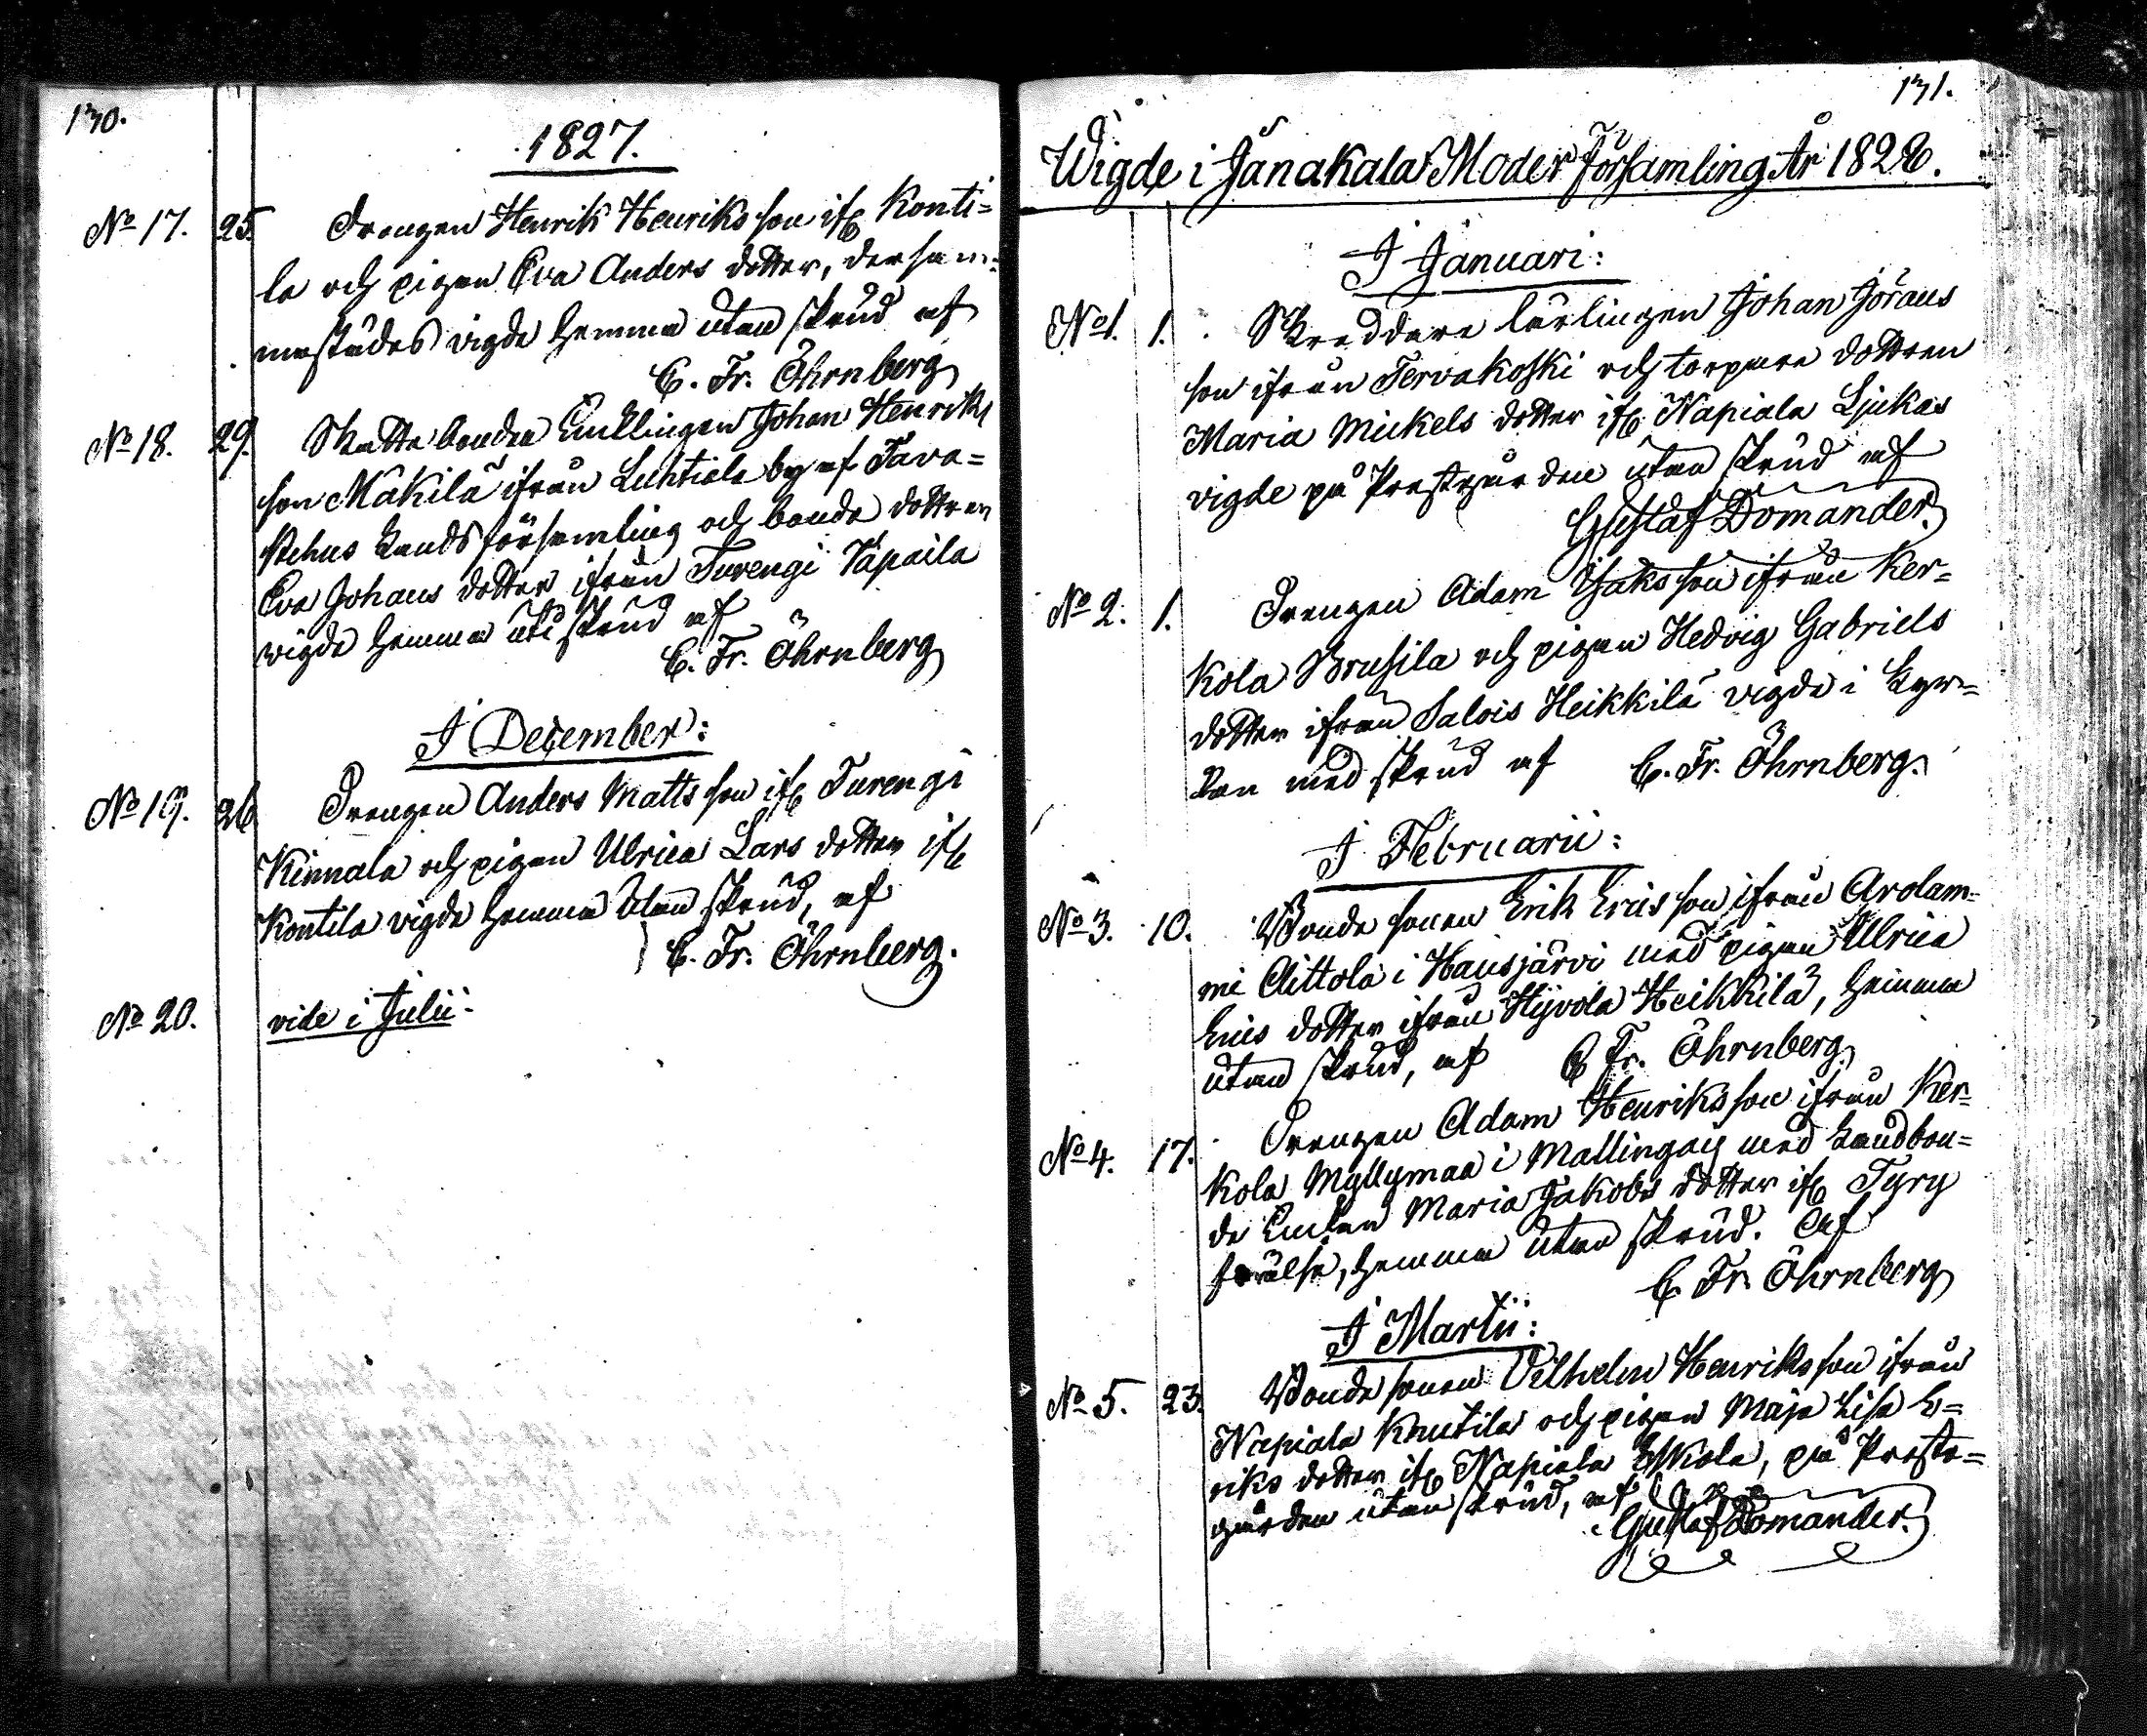 130.
1827.
No 17. 25. Drengen Henrik Henriksson ifr Konti=
la och pigan Eva Anders dotter, dersam=
mastädes vigde hemma utan skrud af
C. Fr. Öhrnberg
No 18. 29. Skatte bonden Enklingen Johan Henriks
son Mäkilä ifrån Luhtiala by af Tava=
stehus Lands församling och bonde dottren
Eva Johans dotter ifrån Turengi Vapaila
wigde hemma uti skrud af
C. Fr. Öhrnberg
I December:
No 19. 26 Drengen Anders Matts son ifr Turengi
Kinnala och pigan Ulrica Lars dotter ifr
Kontila vigde hemma utan skrud, af
C. Fr. Öhrnberg.
No 20. vide i Julii.
131.
Wigde i Janakala Moder Församling År 1828.
I Januari:
No 1. 1. Skreddare lärlingen Johan Jörans
son ifrån Tervakoski och torpare dottren
Maria Mickels dotter ifr Napiala Ljukas
vigde på Prestgården utan skrud af
Gustaf Domander.
No 2. 1. Drengen Adam Isaks son ifrån Ker=
kola Brusila och pigan Hedvig Gabriels
dotter ifrån Salois Heikkilä vigde i Kyr=
kan med skrud af C. Fr. Öhrnberg.
I Februarii:
No 3. 10. Bonde sonen Erik Erics son ifrån Arolam=
mi Aittola i Hausjärvi med pigan Ulrica
Erics dotter ifrån Hyvola Heikkilä, hemma
utan skrud, af C Fr. Öhrnberg.
No 4. 17. Drengen Adam Henriks son ifrån Ker=
kola Myllymaa i Mallingais med Landbon=
de Enkan Maria Jakobs dotter ifr Tyry
frälse, hemma utan skrud. Af
C. Fr. Öhrnberg
I Martii:
No 5. 23. Bonde sonen Vilhelm Henriks son ifrån
Napiala Knutila och pigan Maja Lisa E=
riks dotter ifr Napiala Eskola, på Preste=
gården utan skrud, af
Gustaf Domander.